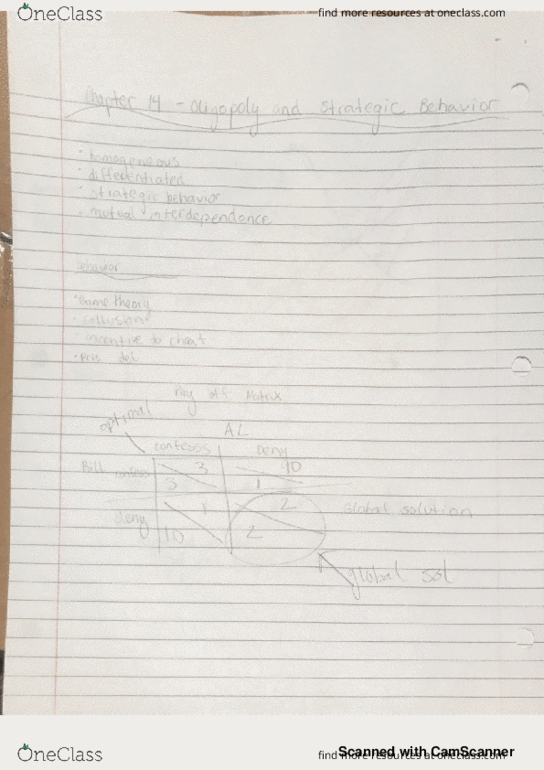 OneClass
find more resources at oneclass.com
Chapter 14 - Oligopoly and Strategic Behavior
· homogeneous
· differentiated
· strategic behavior
· mutual interdependence
Behavior
· Game theory
· collusion
· incentive to cheat
· Pris dil
Pay off Matrix
optimal
AL
confesss deny
Bill confess 3 10
3 1
deny 1 2 Global solution
10 2
global sol
OneClass
find more resources at oneclass.com
Scanned with CamScanner